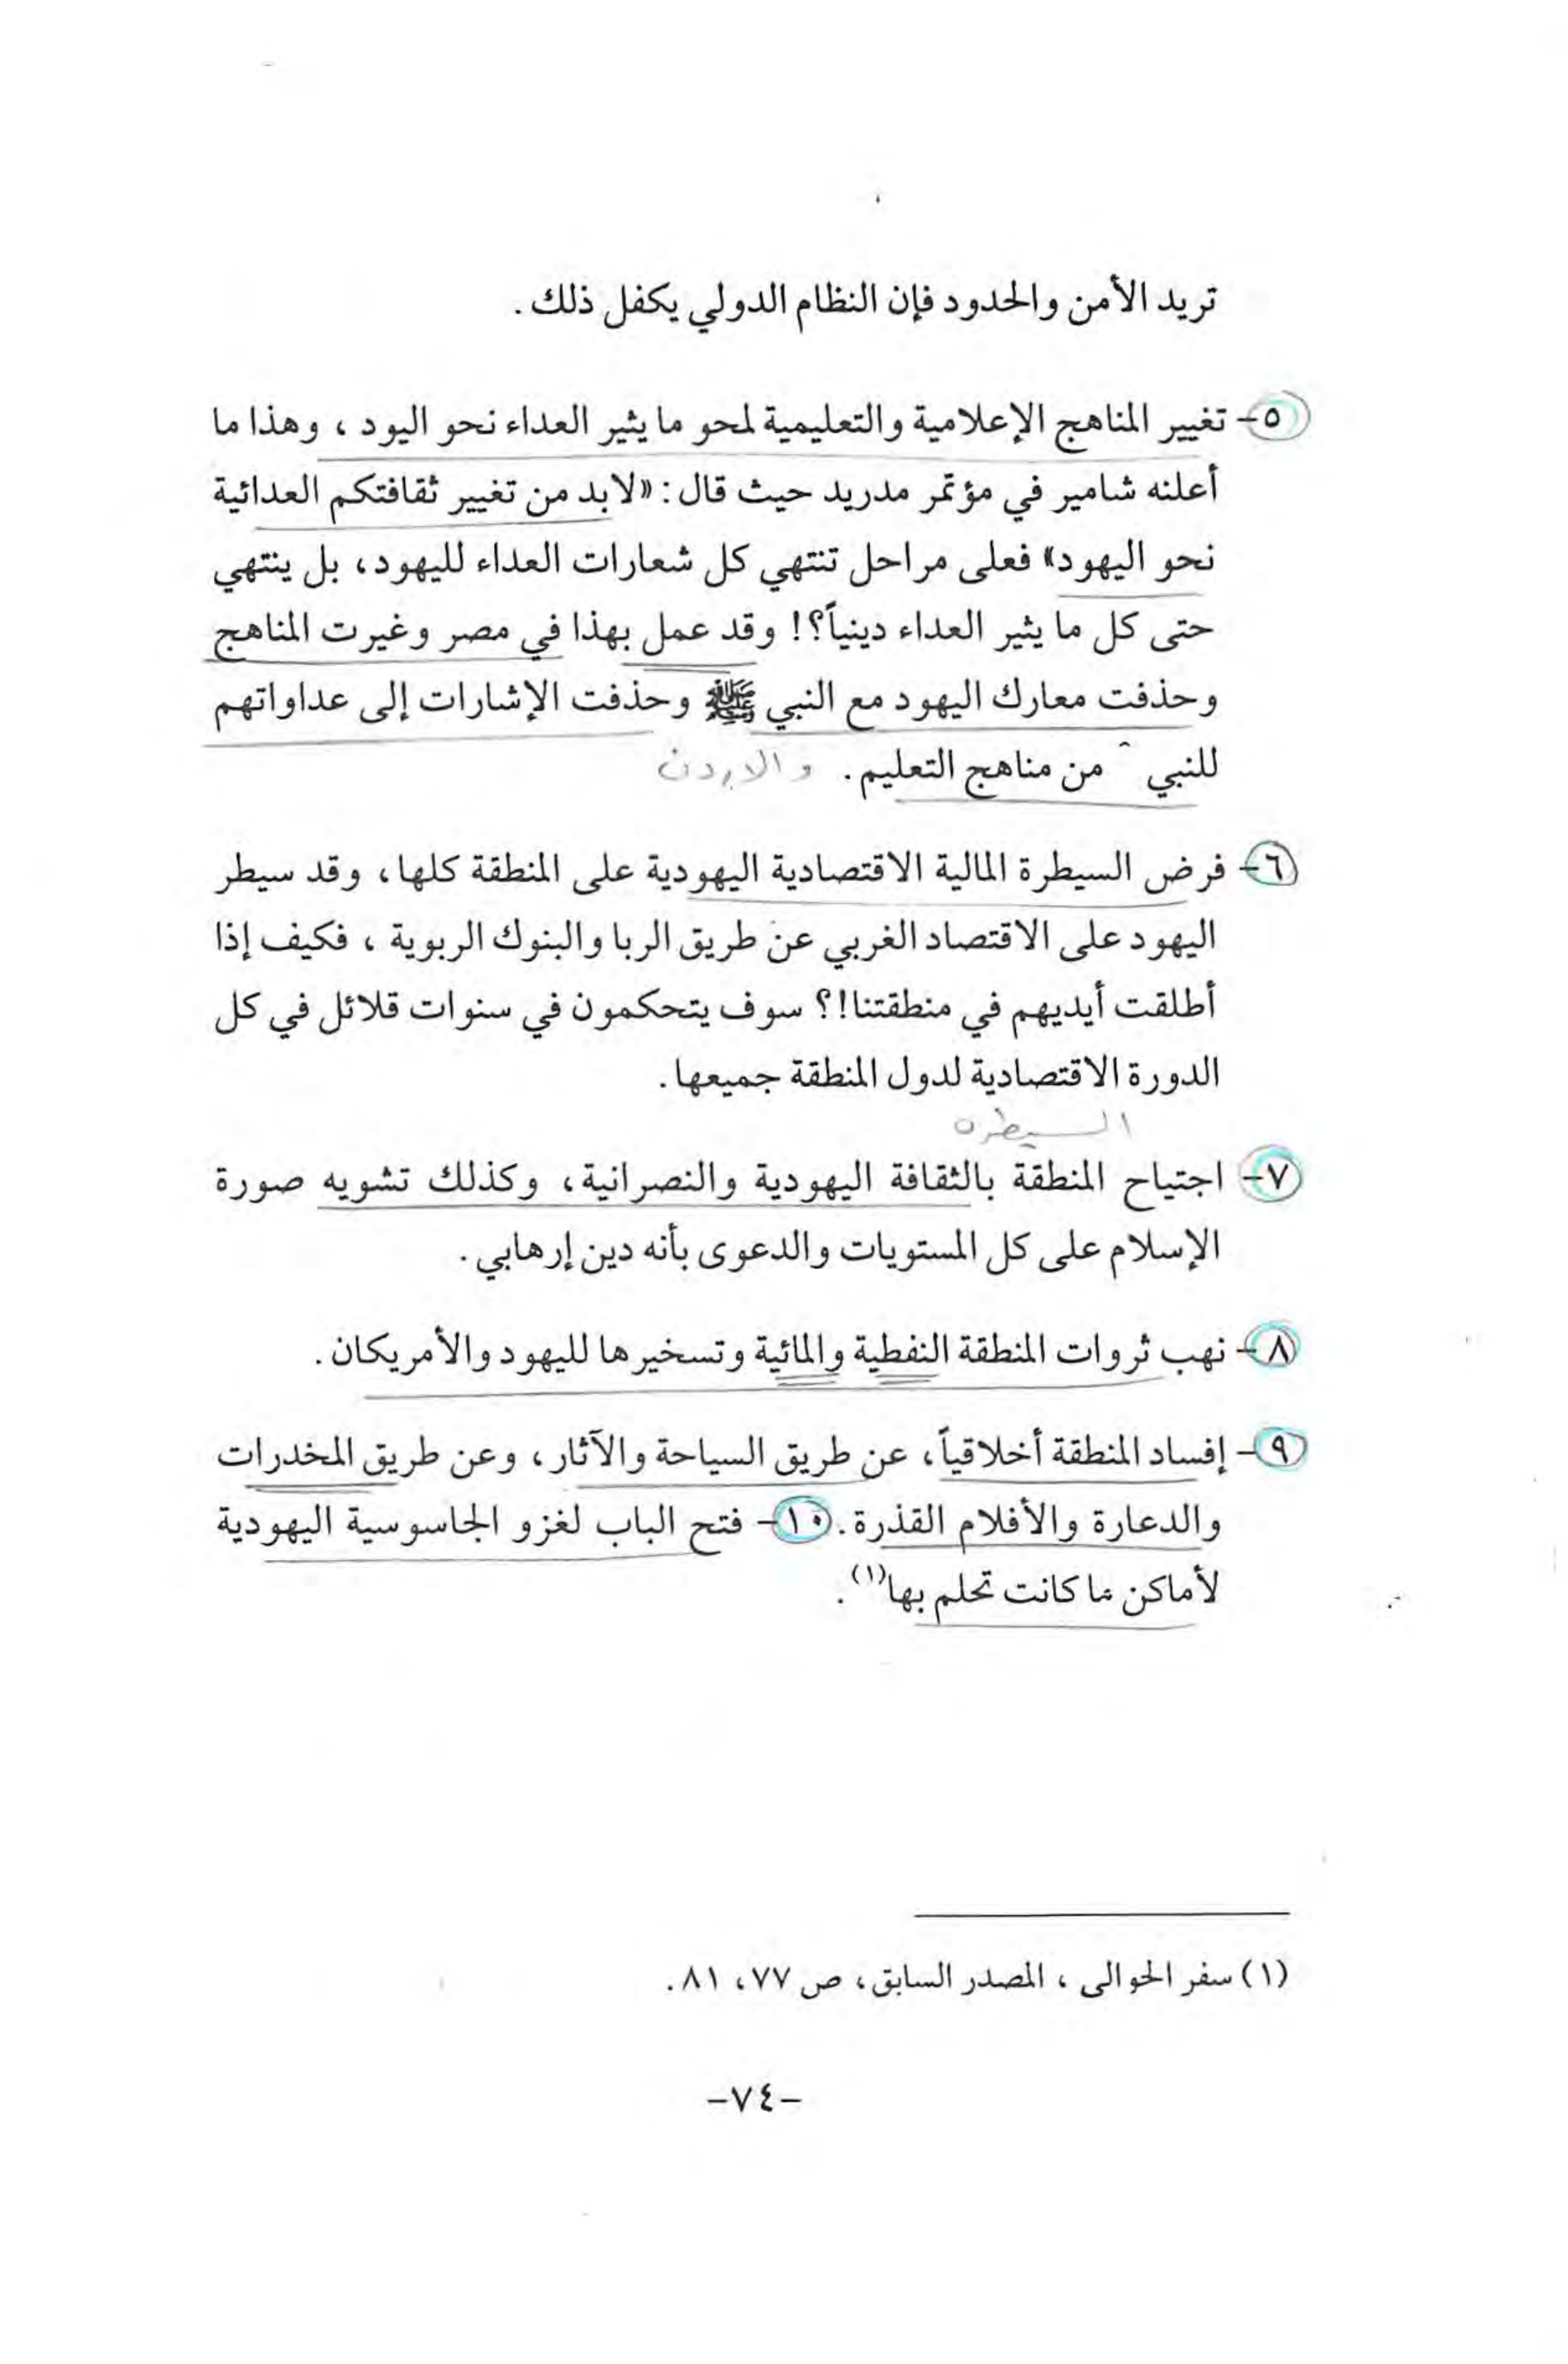 تريد الأمن والحدود فإن النظام الدولي يكفل ذلك .
٥- تغيير المناهج الإعلامية والتعليمية لمحو ما يثير العداء نحو اليود ، وهذا ما
أعلنه شامير في مؤتمر مدريد حيث قال : «لابد من تغيير ثقافتكم العدائية
نحو اليهود» فعلى مراحل تنتهي كل شعارات العداء لليهود ، بل ينتهي
حتى كل ما يثير العداء دينياً؟! وقد عمل بهذا في مصر وغيرت المناهج
وحذفت معارك اليهود مع النبي ﷺ وحذفت الإشارات إلى عداواتهم
للنبي ^ من مناهج التعليم . والاردن
٦- فرض السيطرة المالية الاقتصادية اليهودية على المنطقة كلها ، وقد سيطر
اليهود على الاقتصاد الغربي عن طريق الربا والبنوك الربوية ، فكيف إذا
أطلقت أيديهم في منطقتنا!؟ سوف يتحكمون في سنوات قلائل في كل
الدورة الاقتصادية لدول المنطقة جميعها .
السيطره
٧- اجتياح المنطقة بالثقافة اليهودية والنصرانية ، وكذلك تشويه صورة
الإسلام على كل المستويات والدعوى بأنه دين إرهابي .
٨- نهب ثروات المنطقة النفطية والمائية وتسخيرها لليهود والأمريكان .
٩- إفساد المنطقة أخلاقياً ، عن طريق السياحة والآثار ، وعن طريق المخدرات
والدعارة والأفلام القذرة . ١٠- فتح الباب لغزو الجاسوسية اليهودية
لأماكن ما كانت تحلم بها(١) .
(١) سفر الحوالى ، المصدر السابق ، ص ٧٧ ، ٨١ .
-٧٤-